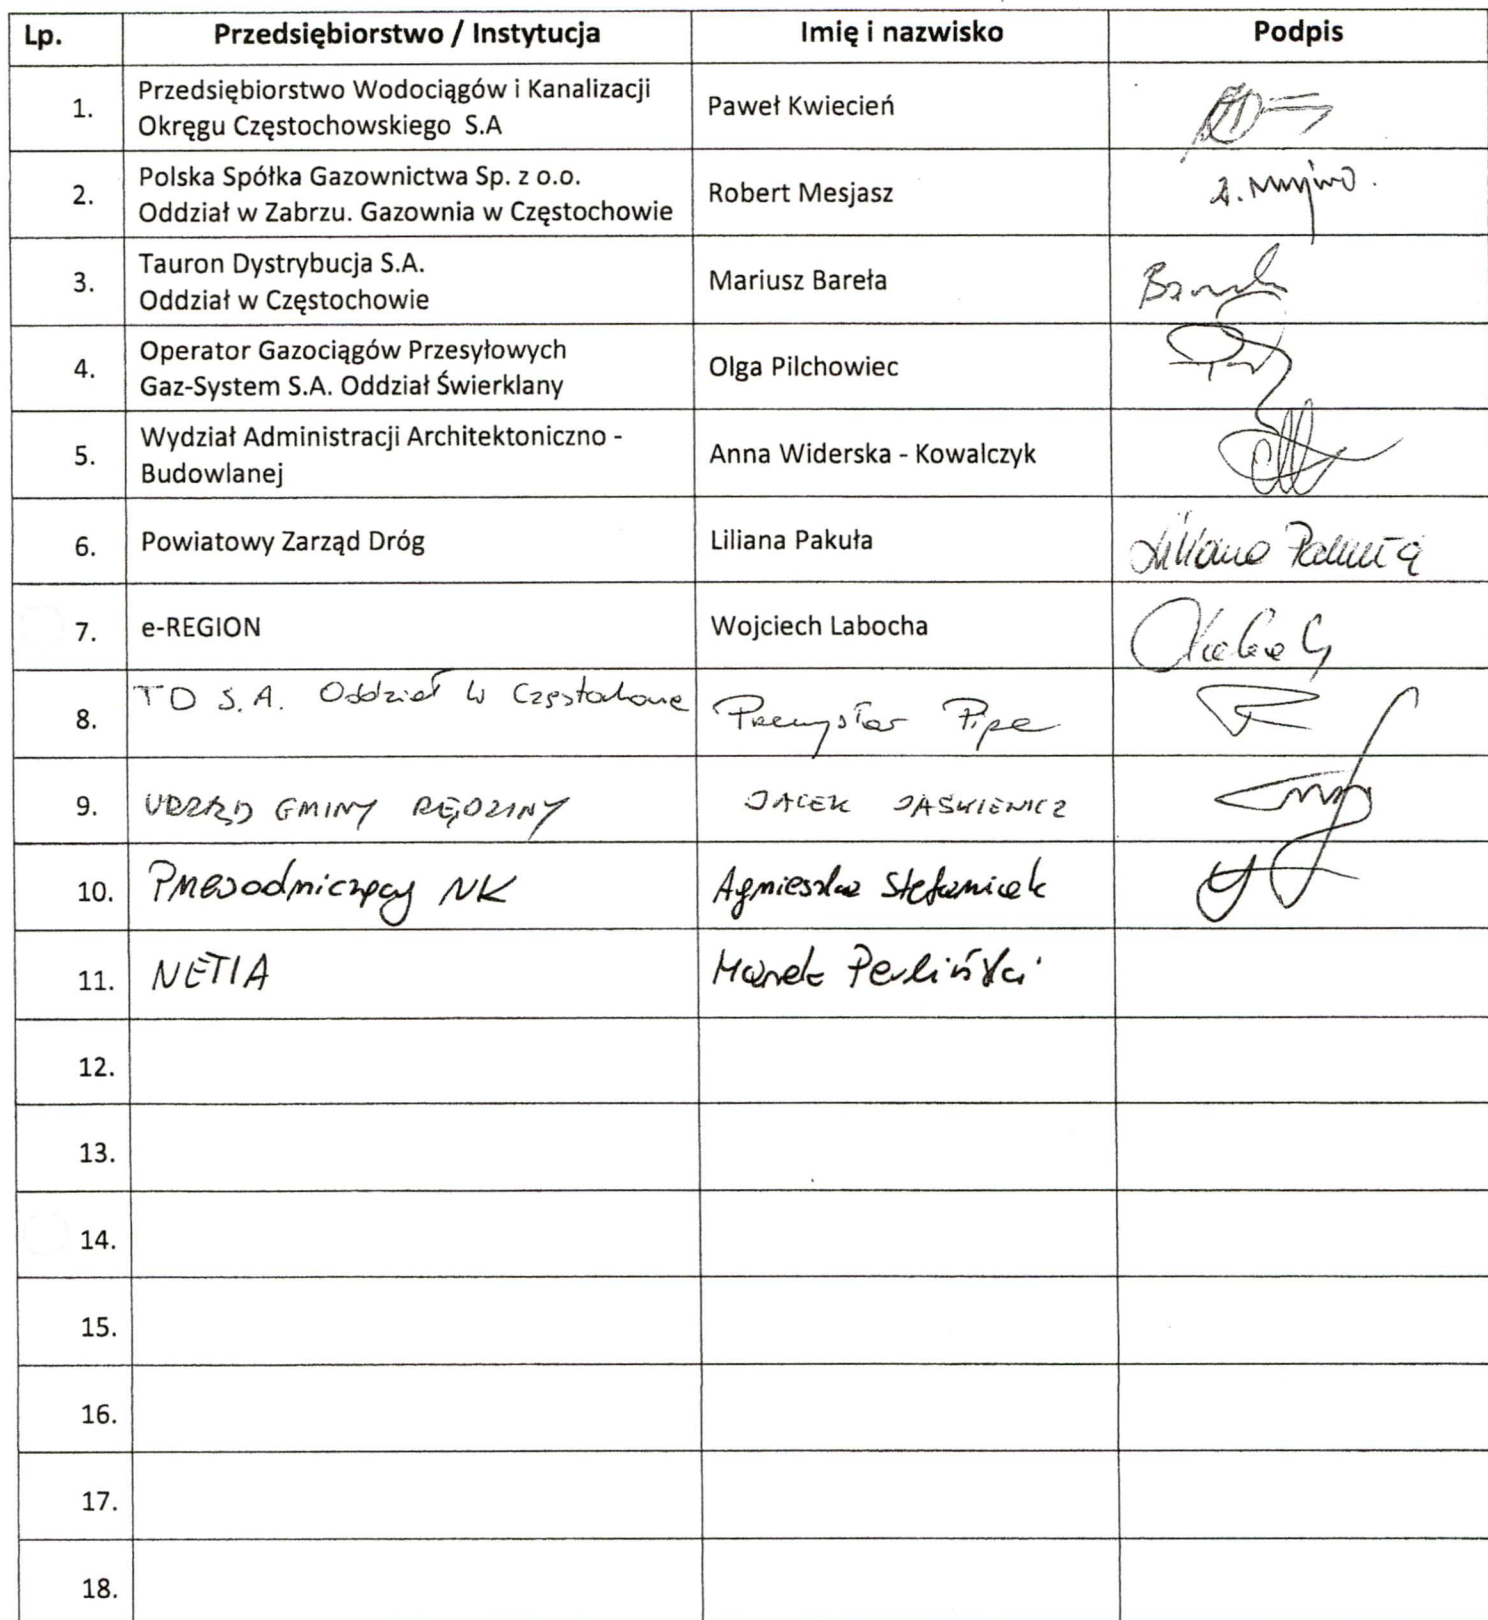 Lp. Przedsiębiorstwo / Instytucja Imię i nazwisko Podpis
1. Przedsiębiorstwo Wodociągów i Kanalizacji
Okręgu Częstochowskiego S.A Paweł Kwiecień
2. Polska Spółka Gazownictwa Sp. z o.o.
Oddział w Zabrzu. Gazownia w Częstochowie Robert Mesjasz
3. Tauron Dystrybucja S.A.
Oddział w Częstochowie Mariusz Bareła
4. Operator Gazociągów Przesyłowych
Gaz-System S.A. Oddział Świerklany Olga Pilchowiec
5. Wydział Administracji Architektoniczno -
Budowlanej Anna Widerska - Kowalczyk
6. Powiatowy Zarząd Dróg Liliana Pakuła Liliana Pakuła
7. e-REGION Wojciech Labocha
8. TD S.A. Oddział w Częstochowie Przemysław Pipe
9. URZĄD GMINY RĘDZINY JACEK JAŚKIEWICZ
10. Przewodniczący NK Agnieszka Stefaniak
11. NETIA Marek Perliński
12.
13.
14.
15.
16.
17.
18.